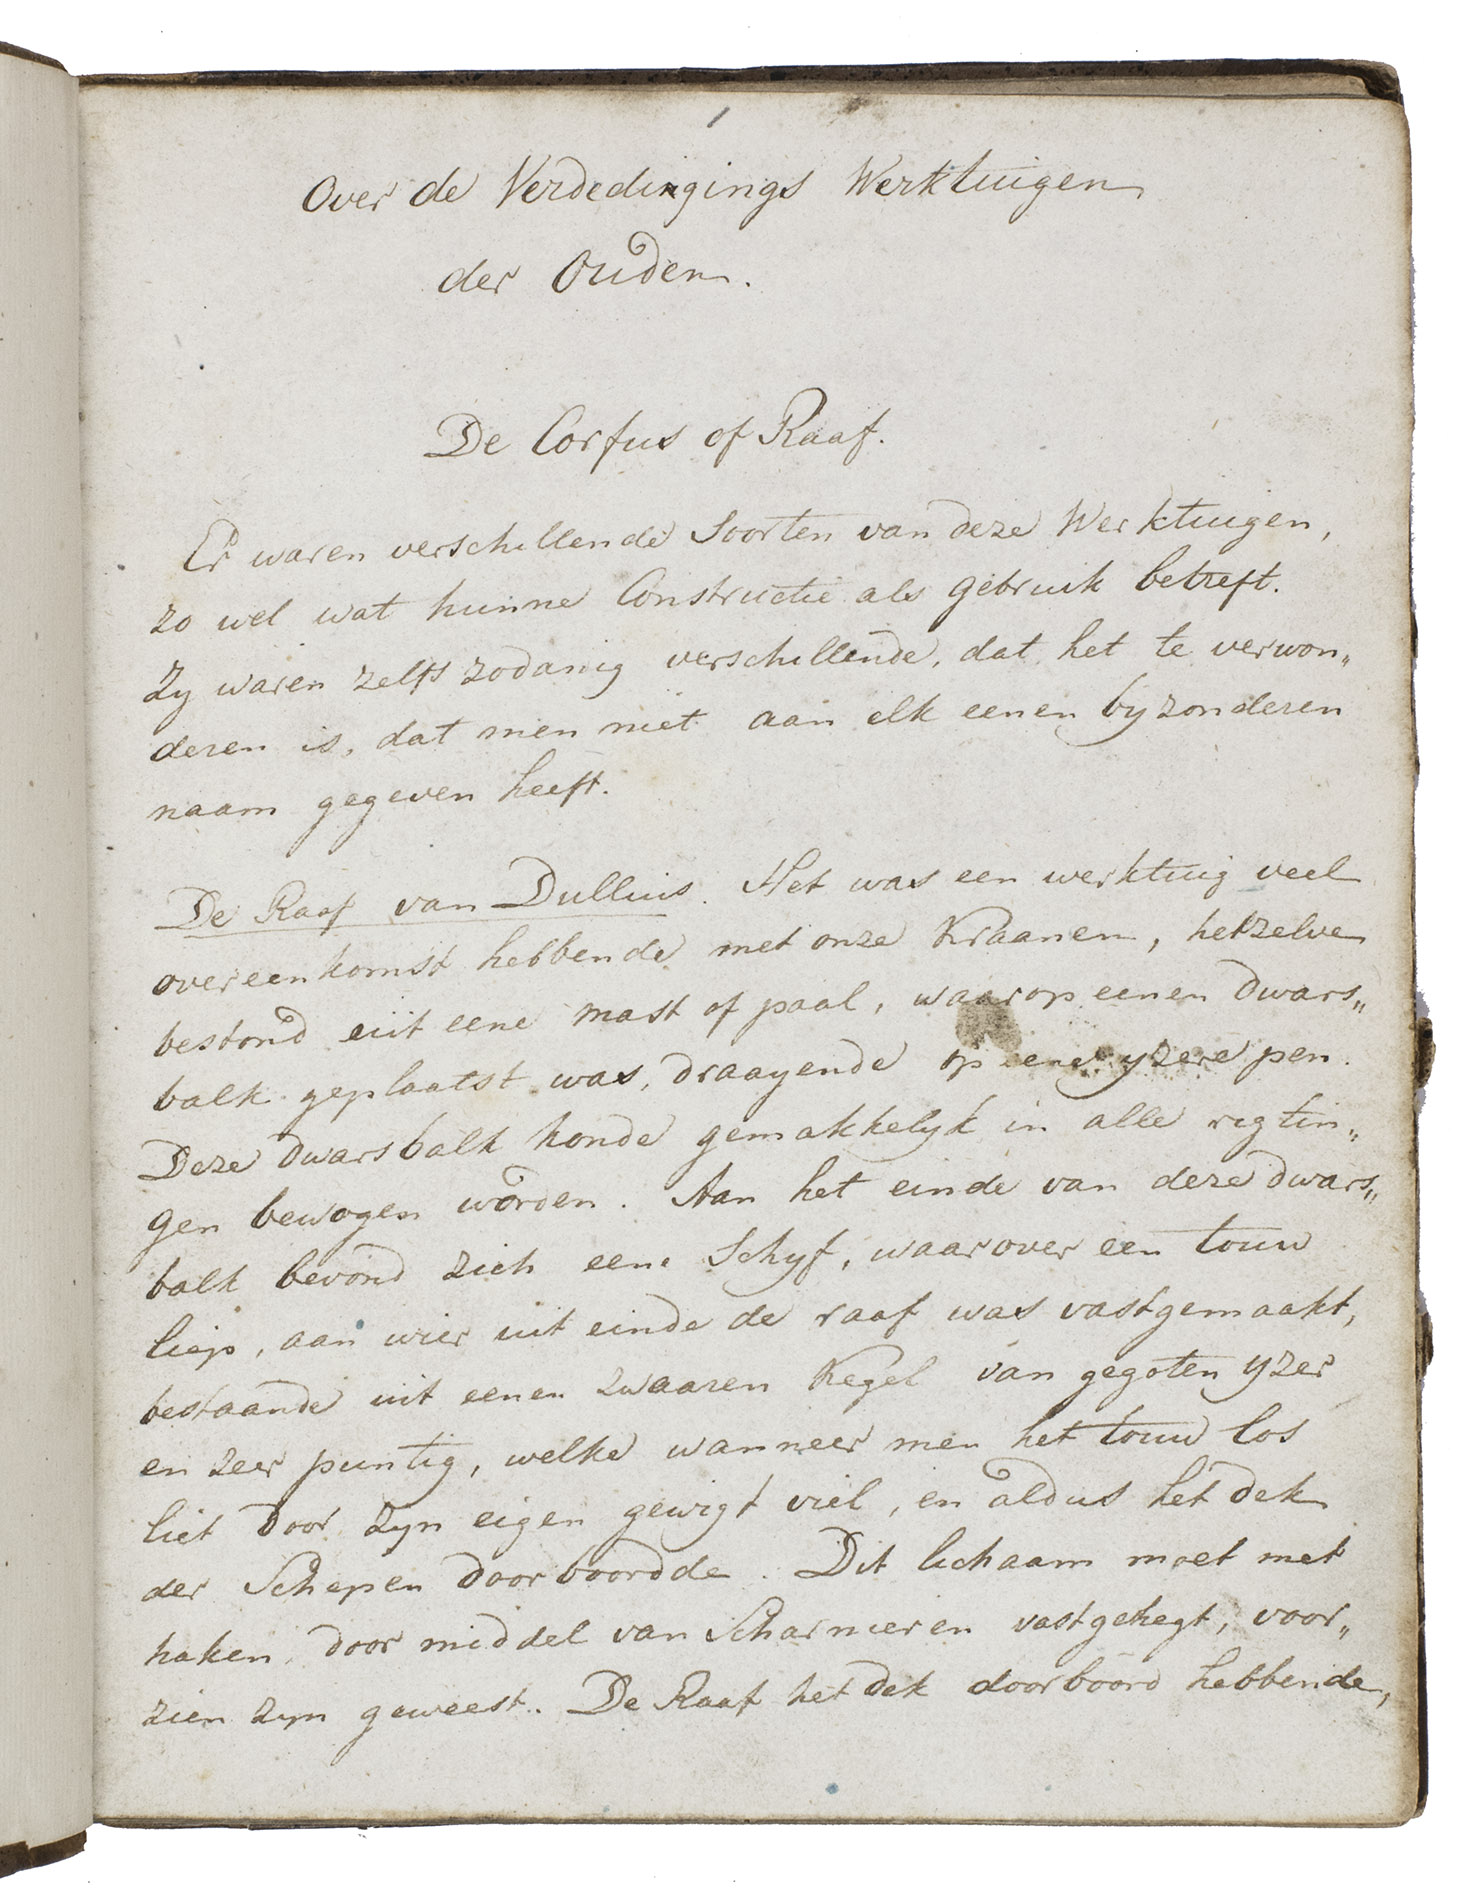 1
Over de Verdedigings Werktuigen
der Ouden.
De Corfus of Raaf.
Er waren verschillende Soorten van deze Werktuigen,
zo wel wat hunne Constructie als gebruik betreft.
Zy waren zelfs zodanig verschillende, dat het te verwon„
deren is, dat men niet aan elk eenen byzonderen
naam gegeven heeft.
De Raaf van Dullius. Het was een werktuig veel
overeenkomst hebbende met onze Kraanen, hetzelve
bestond uit eene mast of paal, waarop eenen dwars„
balk geplaatst was, draayende op eene yzere pen.
Deze dwarsbalk konde gemakkelyk in alle rigtin„
gen bewogen worden. Aan het einde van deze dwars„
balk bevond zich eene Schyf, waarover een touw
liep, aan wier uiteinde de raaf was vastgemaakt,
bestaande uit eenen zwaaren Kegel van gegoten yzer
en zeer puntig, welke wanneer men het touw los
liet door zyn eigen gewigt viel, en aldus het dek
der Schepen doorboordde. Dit lichaam moet met
haken, door middel van Scharnieren vastgehegt, voor„
zien zyn geweest. De Raaf het dek doorboord hebbende,